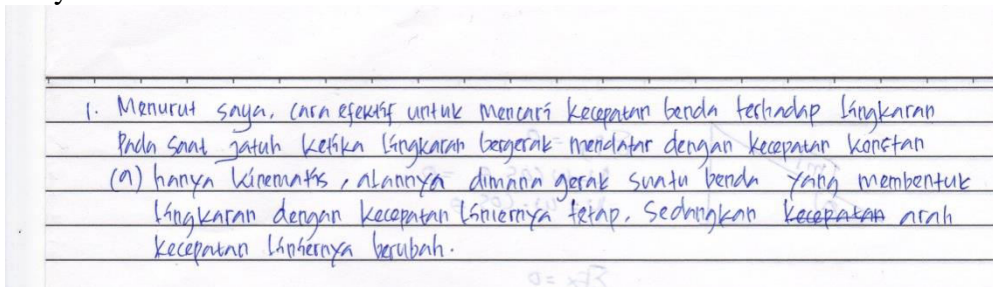 1. Menurut saya, cara efektif untuk mencari kecepatan benda terhadap lingkaran
Pada saat jatuh ketika lingkaran bergerak mendatar dengan kecepatan konstan
(a) hanya kinematis, alannya dimana gerak suatu benda yang membentuk
lingkaran dengan kecepatan liniernya tetap, sedangkan kecepatan arah
kecepatan liniernya berubah.